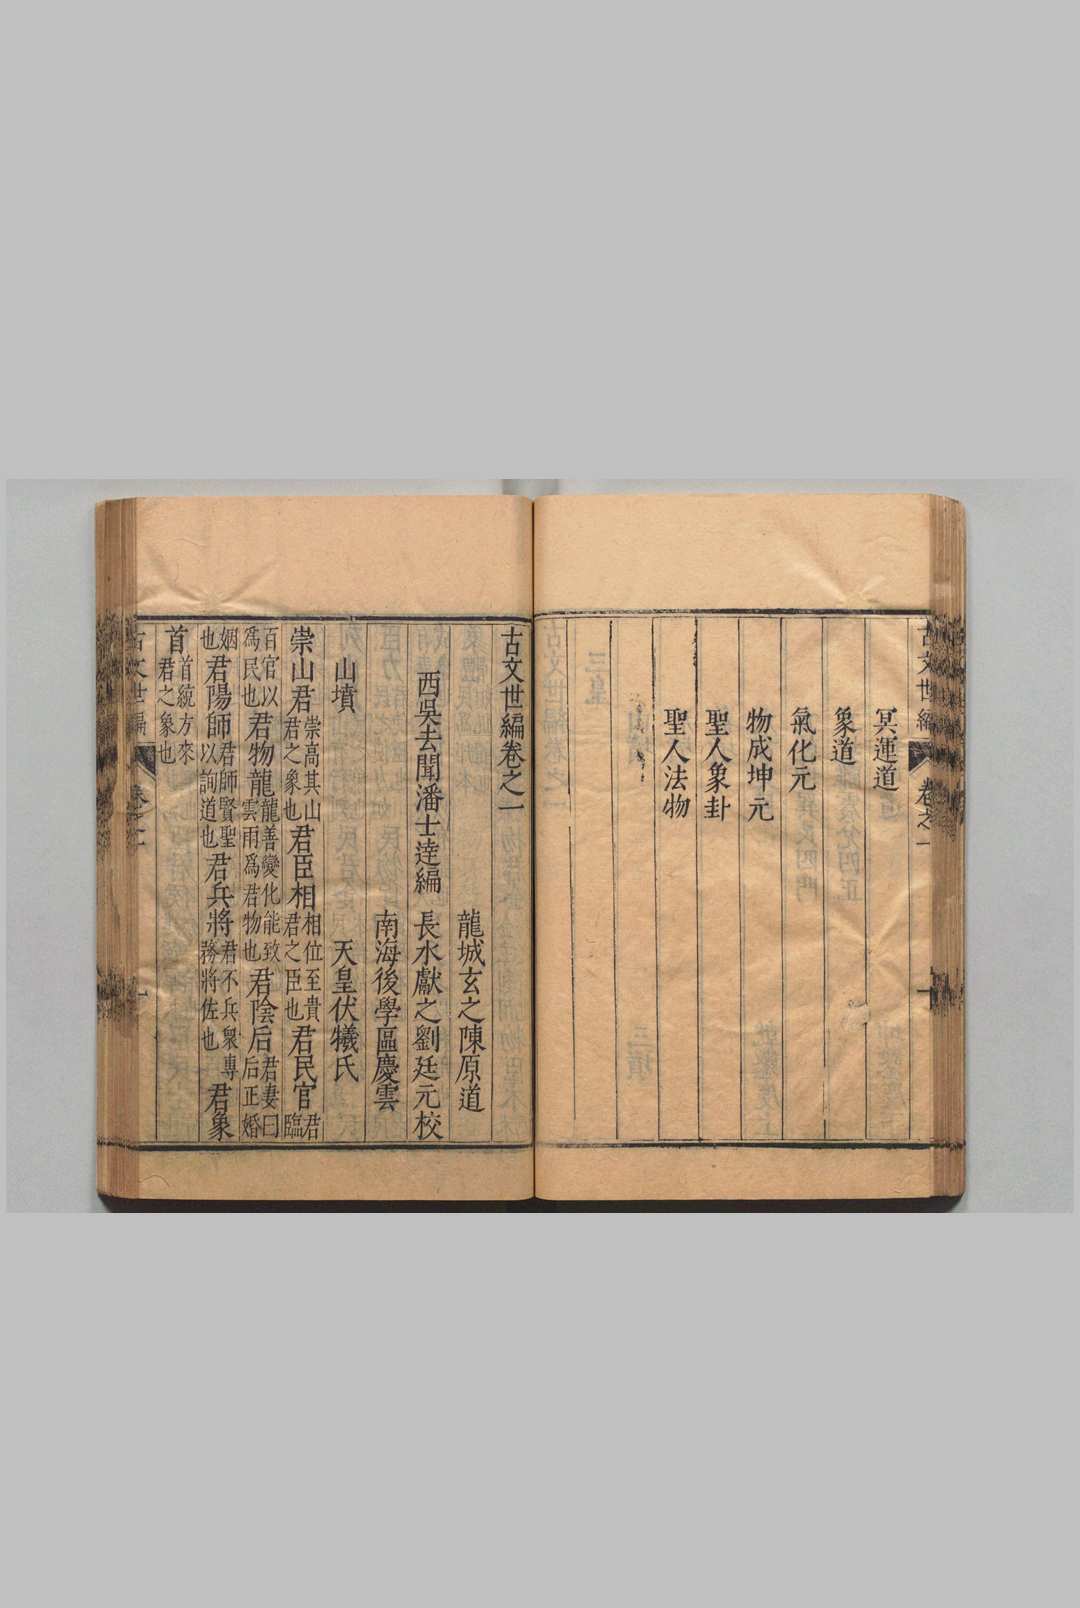 古文世編 卷之一 一
冥運道
象道
氣化元
物成坤元
聖人象卦
聖人法物
古文世編卷之一
龍城玄之陳原道
西吳去聞潘士達編 長水獻之劉廷元校
南海後學區慶雲
山墳 天皇伏犧氏
崇山君崇高其山君之象也君臣相相位至貴君之臣也君民官君臨
百官以爲民也君物龍龍善變化能致雲雨爲君物也君陰后君妻曰后正婚
姻也君陽師君師賢聖以詢道也君兵將君不兵衆專務將佐也君象
首首統方來君之象也
古文世編 卷之一 一